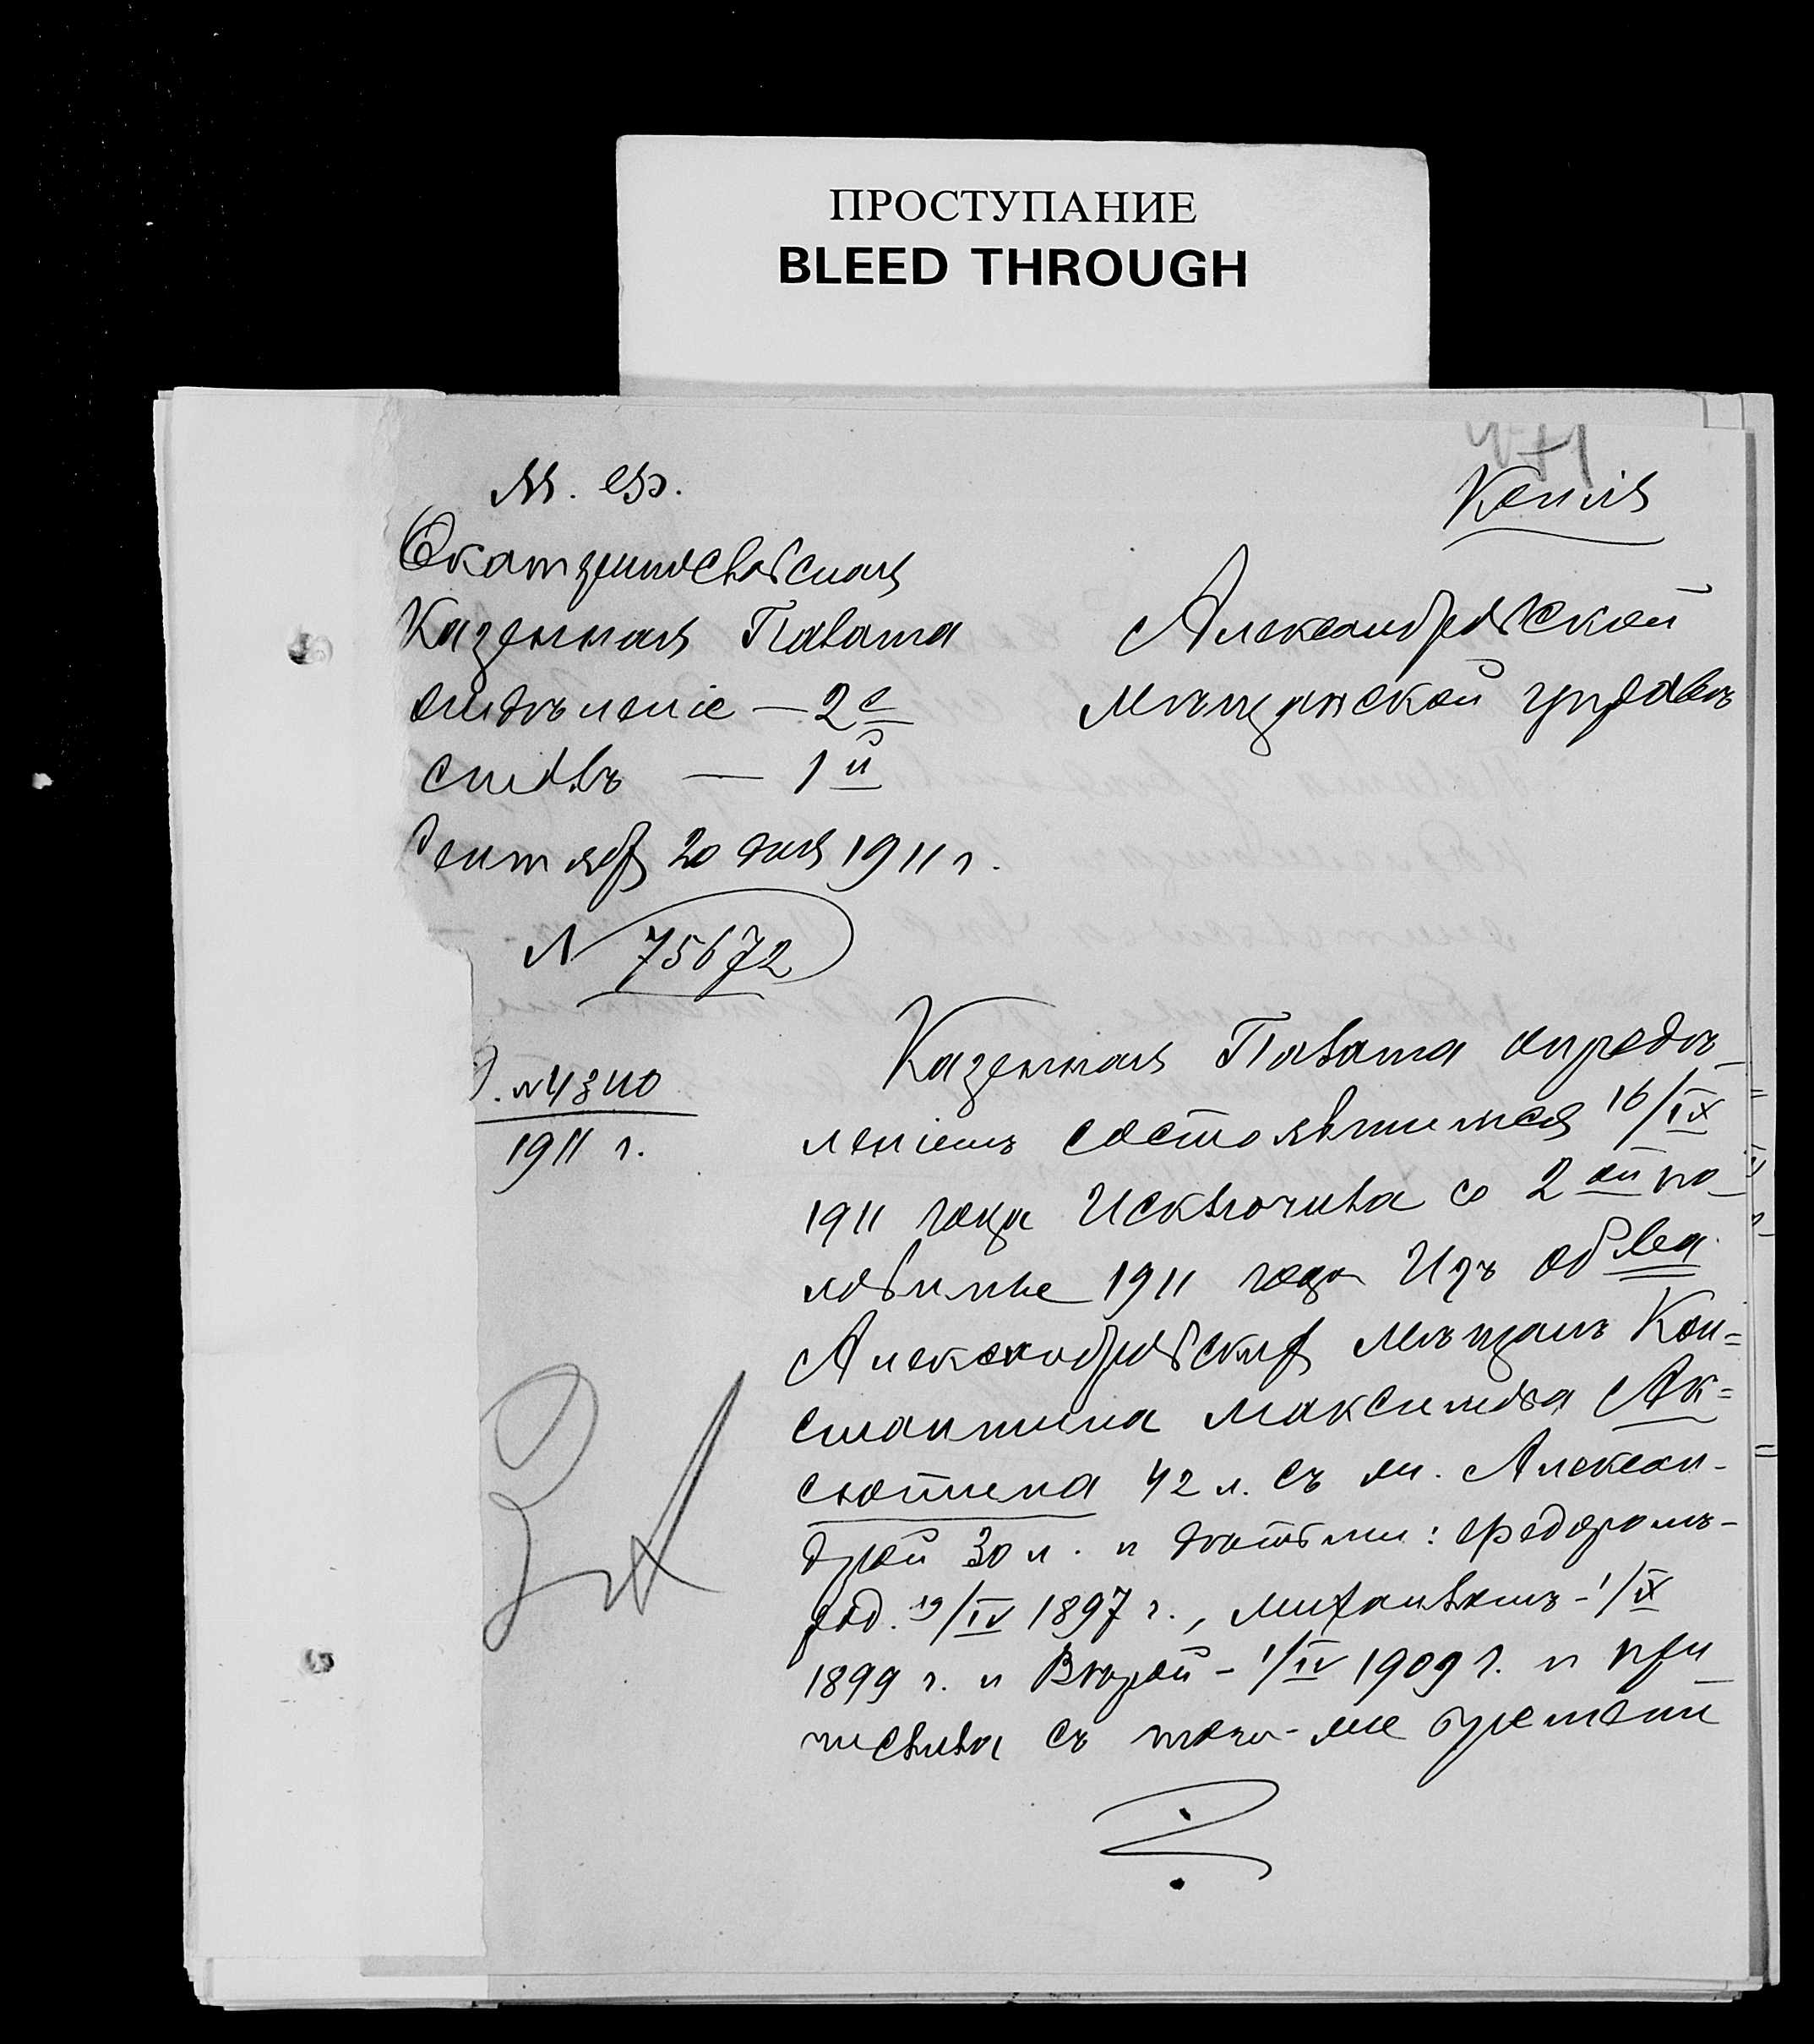 ПРОСТУПАНИЕ
BLEED THROUGH
471
Копія
М. Ф.
Екатеринославская
Казенная Палата
отдѣленіе — 2е
столъ — 1й
Сентябр 20 дня 1911 г.
N 75672
Д. №4340
1911 г.
Александровской
мѣщанской управѣ
Казенная Палата опредѣ-
леніемъ состоявшимся 16/IX
1911 года исключила со 2ой по-
ловины 1911 года изъ об-ва
Александровских мѣщанъ Кон=
стантина Максимова Ак=
сютина 42 л. съ ж. Алексан-
дрой 30 л. и дѣтьми: Федоромъ-
род. 19/IV 1897 г., Михаиломъ - 1/IX
1899 г. и Вѣрой - 1/IV 1909 г. и при
числила съ того-же времени